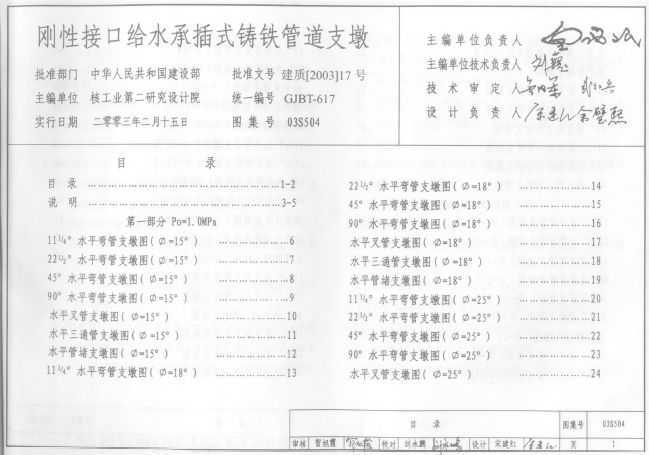 刚性接口给水承插式铸铁管道支墩
批准部门 中华人民共和国建设部 批准文号 建质[2003]17号
主编单位 核工业第二研究设计院 统一编号 GJBT-617
实行日期 二零零三年二月十五日 图集号 03S504
主编单位负责人
主编单位技术负责人
技术审定人
设计负责人
目 录
目 录 ……………………………………1-2
说 明 ……………………………………3-5
第一部分 Po=1.0MPa
11¼° 水平弯管支墩图(Ø=15°) ……………6
22½° 水平弯管支墩图(Ø=15°) ……………7
45° 水平弯管支墩图(Ø=15°) ……………8
90° 水平弯管支墩图(Ø=15°) ……………9
水平叉管支墩图(Ø=15°) ……………10
水平三通管支墩图(Ø=15°) ……………11
水平管堵支墩图(Ø=15°) ……………12
11¼° 水平弯管支墩图(Ø=18°) ……………13
22½° 水平弯管支墩图(Ø=18°) ……………14
45° 水平弯管支墩图(Ø=18°) ……………15
90° 水平弯管支墩图(Ø=18°) ……………16
水平叉管支墩图(Ø=18°) ……………17
水平三通管支墩图(Ø=18°) ……………18
水平管堵支墩图(Ø=18°) ……………19
11¼° 水平弯管支墩图(Ø=25°) ……………20
22½° 水平弯管支墩图(Ø=25°) ……………21
45° 水平弯管支墩图(Ø=25°) ……………22
90° 水平弯管支墩图(Ø=25°) ……………23
水平叉管支墩图(Ø=25°) ……………24
目 录 图集号 03S504
审核 校对 设计 页 1